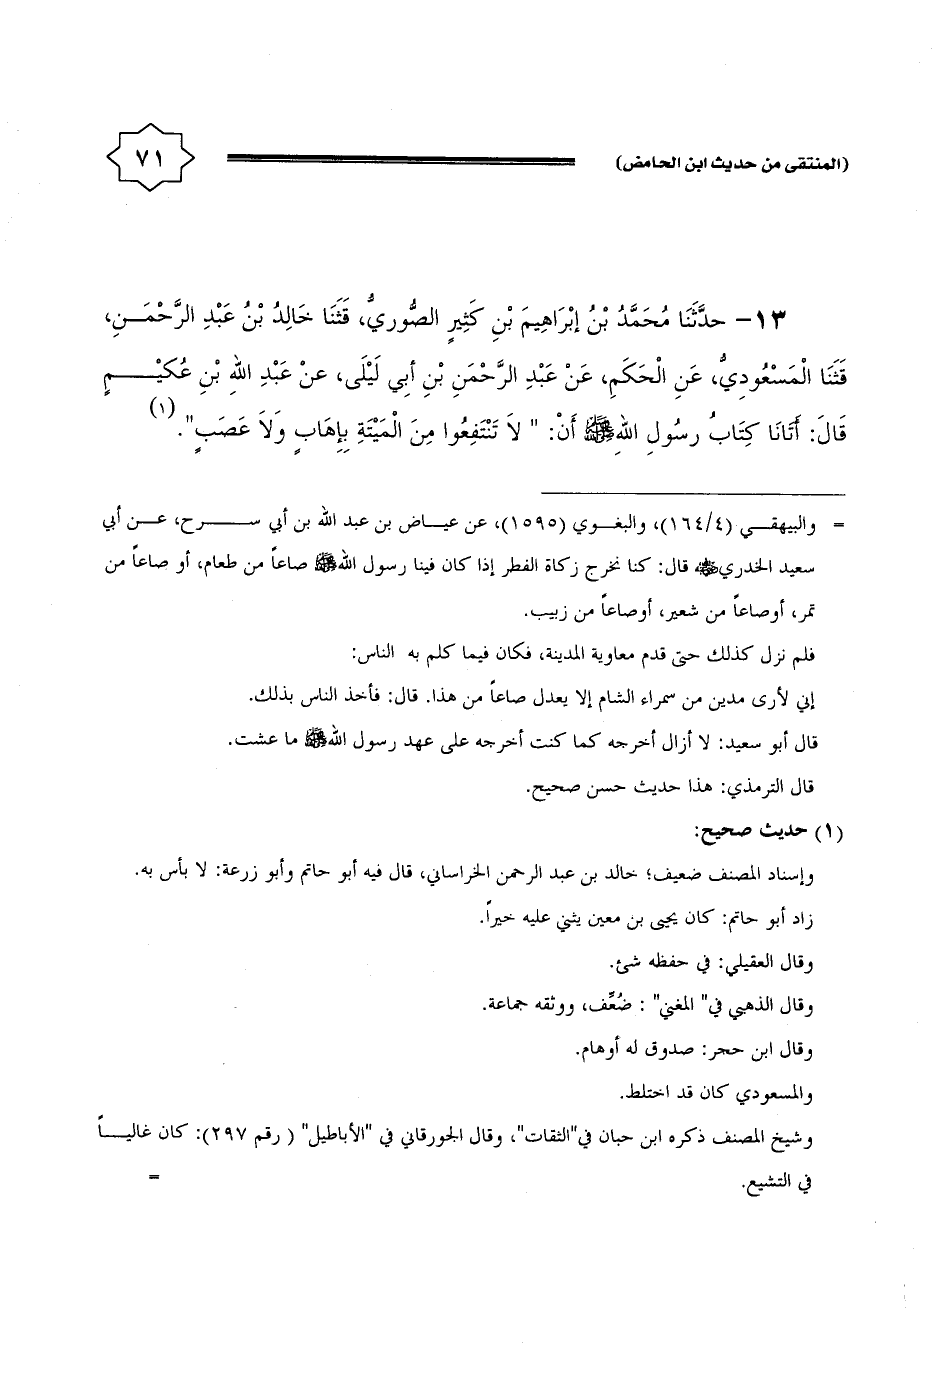 (المنتقى من حديث ابن الحامض) ٧١
١٣- حدَّثَنَا مُحَمَّدُ بْنُ إبْرَاهِيمَ بْنِ كَثِيرٍ الصُّورِيُّ، قَثَنَا خَالِدُ بْنُ عَبْدِ الرَّحْمَــنِ،
قَثَنَا الْمَسْعُودِيُّ، عَنِ الْحَكَمِ، عَنْ عَبْدِ الرَّحْمَنِ بْنِ أبي لَيْلَى، عنْ عَبْدِ اللهِ بْنِ عُكَيْــــمٍ
قَالَ: أَتَانَا كِتَابُ رسُولِ اللهِ ﷺ أَنْ: " لاَ تَنْتَفِعُوا مِنَ الْمَيْتَةِ بِإِهَابٍ وَلاَ عَصَبٍ".(١)
= والبيهقــي (١٦٤/٤)، والبغــوي (١٥٩٥)، عن عيــاض بن عبد الله بن أبي ســـــرح، عــن أبي
سعيد الخدري ﷺ قال: كنا نخرج زكاة الفطر إذا كان فينا رسول الله ﷺ صاعاً من طعام، أو صاعاً من
تمر، أوصاعاً من شعير، أوصاعاً من زبيب.
فلم نزل كذلك حتى قدم معاوية المدينة، فكان فيما كلم به الناس:
إني لأرى مدين من سمراء الشام إلا يعدل صاعاً من هذا. قال: فأخذ الناس بذلك.
قال أبو سعيد: لا أزال أخرجه كما كنت أخرجه على عهد رسول الله ﷺ ما عشت.
قال الترمذي: هذا حديث حسن صحيح.
(١) حديث صحيح:
وإسناد المصنف ضعيف؛ خالد بن عبد الرحمن الخراساني، قال فيه أبو حاتم وأبو زرعة: لا بأس به.
زاد أبو حاتم: كان يحيى بن معين يثني عليه خيراً.
وقال العقيلي: في حفظه شئ.
وقال الذهبي في" المغني" : ضُعِّف، ووثقه جماعة.
وقال ابن حجر: صدوق له أوهام.
والمسعودي كان قد اختلط.
وشيخ المصنف ذكره ابن حبان في"الثقات"، وقال الجورقاني في "الأباطيل" ( رقم ٢٩٧): كان غاليــاً
في التشيع. =